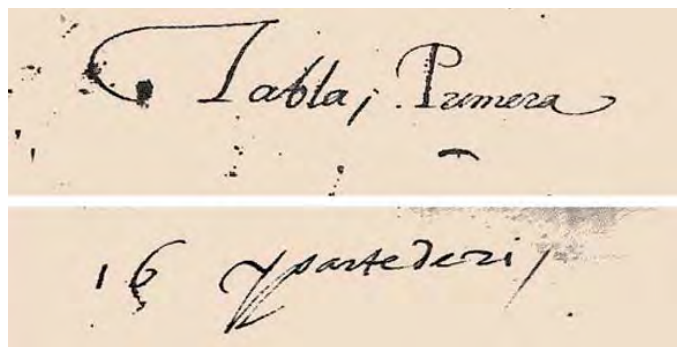 Tabla, Primera
16 y parte deri